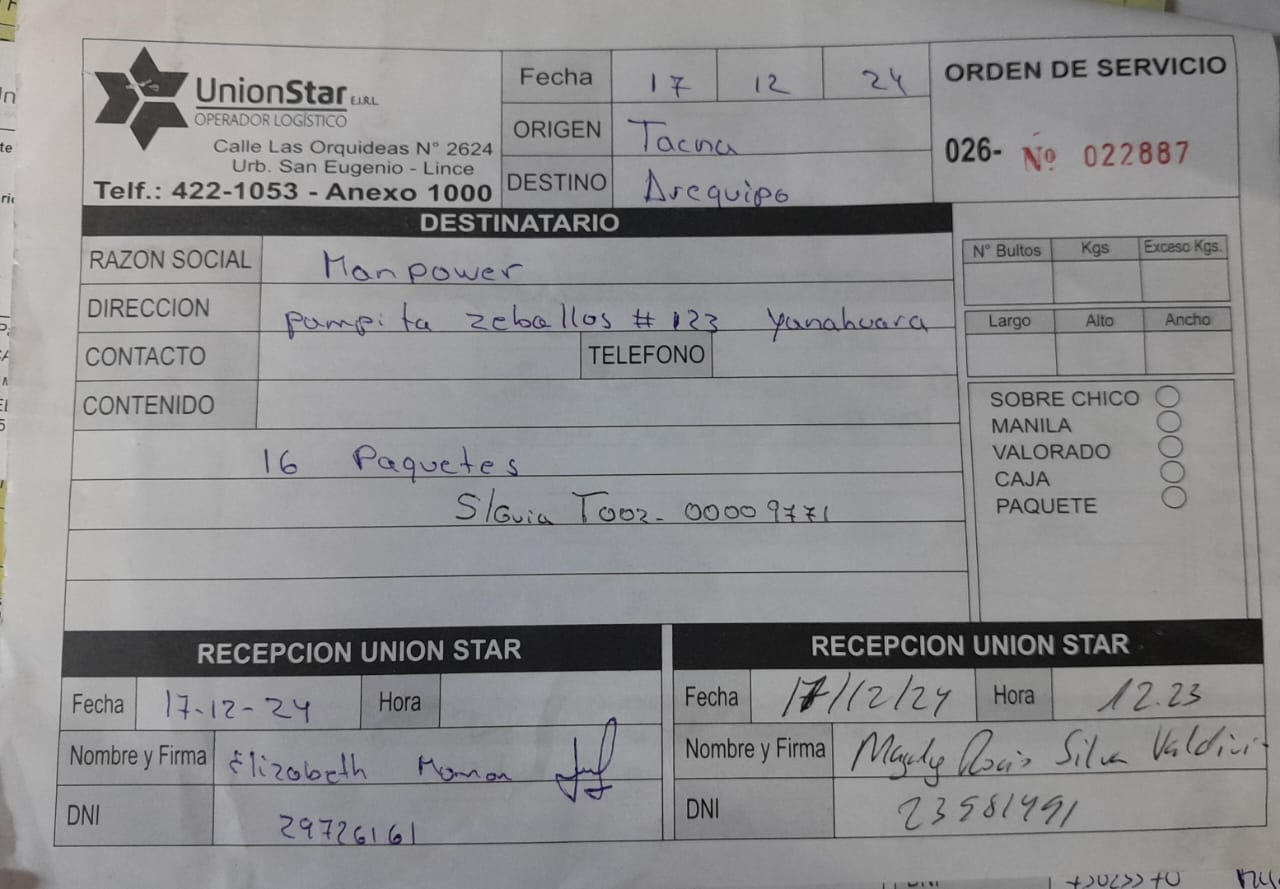 UnionStar E.I.R.L.
OPERADOR LOGÍSTICO
Calle Las Orquideas N° 2624
Urb. San Eugenio - Lince
Telf.: 422-1053 - Anexo 1000
Fecha 17 12 24
ORIGEN Tacna
DESTINO Arequipa
ORDEN DE SERVICIO
026- Nº 022887
DESTINATARIO
RAZON SOCIAL Manpower
DIRECCION pampita zeballos # 123 Yanahuara
CONTACTO TELEFONO
CONTENIDO
16 Paquetes
S/Guia T002- 00009771
N° Bultos Kgs Exceso Kgs.
Largo Alto Ancho
SOBRE CHICO
MANILA
VALORADO
CAJA
PAQUETE
RECEPCION UNION STAR
Fecha 17-12-24 Hora
Nombre y Firma Elizabeth Mamani
DNI 29726161
RECEPCION UNION STAR
Fecha 17/12/24 Hora 12.23
Nombre y Firma Magaly Rocio Silva Valdivi
DNI 23981491